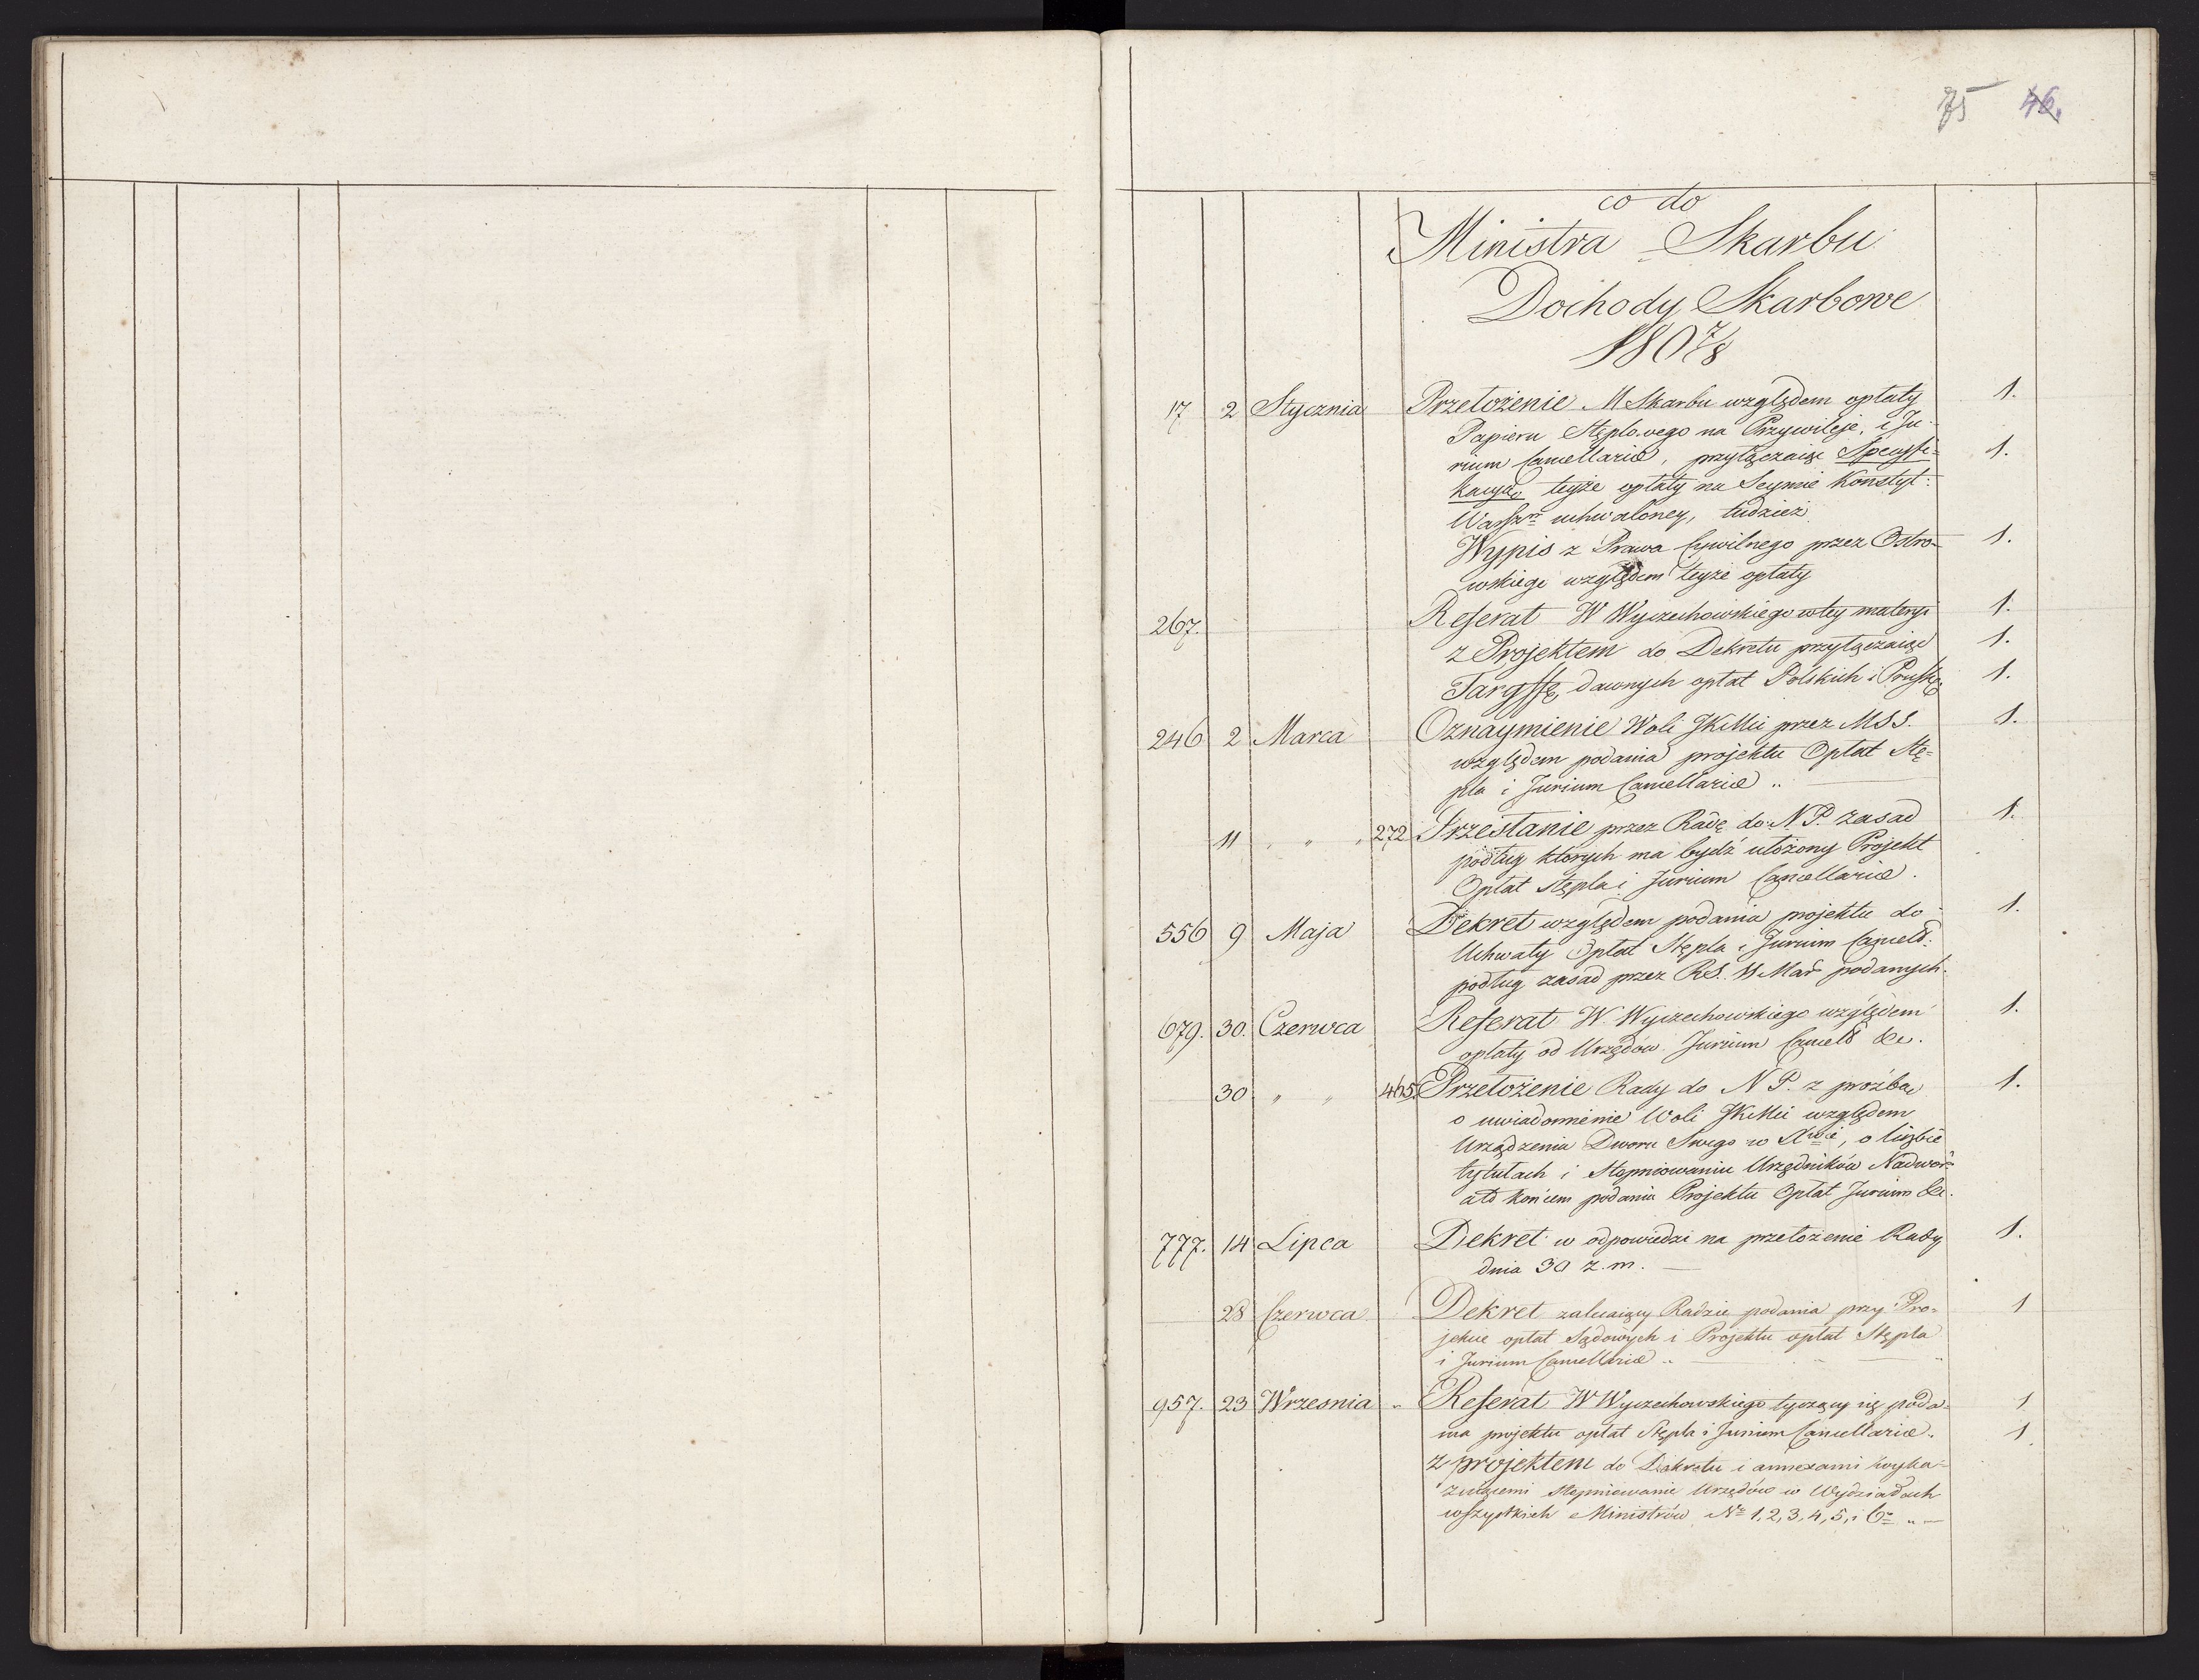 75 46.
co do
Ministra Skarbu
Dochody Skarbowe
1807/8
17 2 Stycznia Przełożenie M Skarbu względem opłaty 1.
Papieru Stęplowego na Przywileje, i Ju-
rium Cancellariæ, przyłączaiąc Specyfi= 1.
kacyą teyże opłaty na Seymie Konstyt:
Warszw uchwaloney, tudzież
Wypis z Prawa Cywilnego przez Ostro- 1.
wskiego względem teyże opłaty
267. Referat W Wyczechowskiego w tey materyi 1.
z Projektem do Dekretu przyłączaiąc 1.
Taryffę dawnych opłat Polskich i Prusk: 1.
246 2 Marca Oznaymienie Woli JKMci przez MSS. 1.
względem podania projektu Opłat Stę=
pla i Jurium Cancellariæ „
11 „ „ 272 Przesłanie przez Radę do N.P. zasad 1.
podług których ma bydź ułożony Projekt
Opłat stępla i Jurium Cancellariæ.
556 9 Maja Dekret względem podania projektu do 1.
Uchwały Opłat Stępla i Jurium Cancell:
podług zasad przez RS. 11 Mar podanych.
679. 30. Czerwca Referat W. Wyczechowskiego względem 1.
opłaty od Urzędów Jurium Cancell &c.
30 „ „ 465. Przełożenie Rady do N P. z proźbą 1.
o uwiadomienie Woli JKMci względem
Urządzenia Dworu Swego w Xwie, o liczbie
tytułach i Stopniowaniu Urzędników Nadwor:
a to końcem podania Projektu Opłat Jurium &c.
777. 14 Lipca Dekret w odpowiedzi na przełożenie Rady 1.
dnia 30 z.m. —
28 Czerwca Dekret zalecaiący Radzie podania przy Pro- 1
jekcie opłat Sądowych i Projektu opłat Stępla
i Jurium Cancellariæ „ —
957. 23 Wrzesnia „ Referat W Wyczechowskiego tyczący się poda- 1
nia projektu opłat Stępla i Jurium Cancellariæ „ 1.
z projektem do Dekretu i annexami wyka-
zuiącemi stopniowanie Urzędów w Wydziałach
wszystkich Ministrów No 1, 2, 3, 4, 5, i 6. „ —